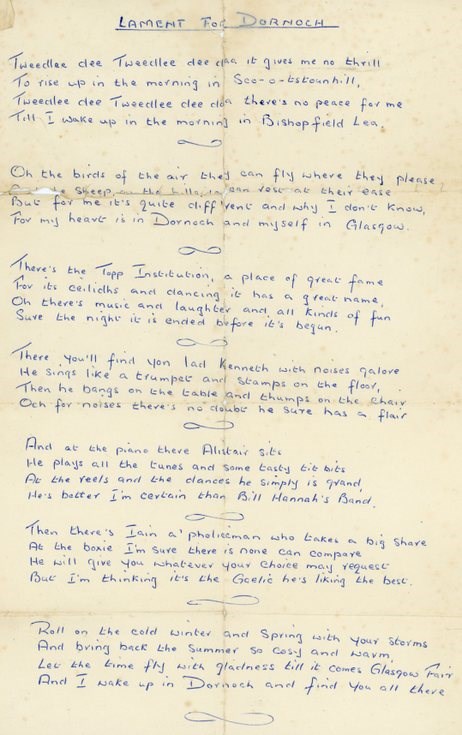 LAMENT FOR DORNOCH
Tweedlee dee Tweedlee dee daa it gives me no thrill
To rise up in the morning in Sco-o-tstounhill,
Tweedlee dee Tweedlee dee daa there's no peace for me
Till I wake up in the morning in Bishopfield Lea.
Oh the birds of the air they can fly where they please
sheep on the hills can rest at their ease
But for me it's quite diff'rent and why I don't know,
For my heart is in Dornoch and myself in Glasgow.
There's the Topp Institution, a place of great fame
For its ceilidhs and dancing it has a great name,
Oh there's music and laughter and all kinds of fun
Sure the night it is ended before it's begun.
There you'll find yon lad Kenneth with noises galore
He sings like a trumpet and stamps on the floor,
Then he bangs on the table and thumps on the chair
Och for noises there's no doubt he sure has a flair
And at the piano there Alistair sits
He plays all the tunes and some tasty tit bits
At the reels and the dances he simply is grand
He's better I'm certain than Bill Hannah's Band.
Then there's Iain a' pholiceman who takes a big share
At the boxie I'm sure there is none can compare
He will give you whatever your choice may request
But I'm thinking it's the Gaelic he's liking the best.
Roll on the cold winter and Spring with your storms
And bring back the Summer so cosy and warm
Let the time fly with gladness till it comes Glasgow Fair
And I wake up in Dornoch and find you all there